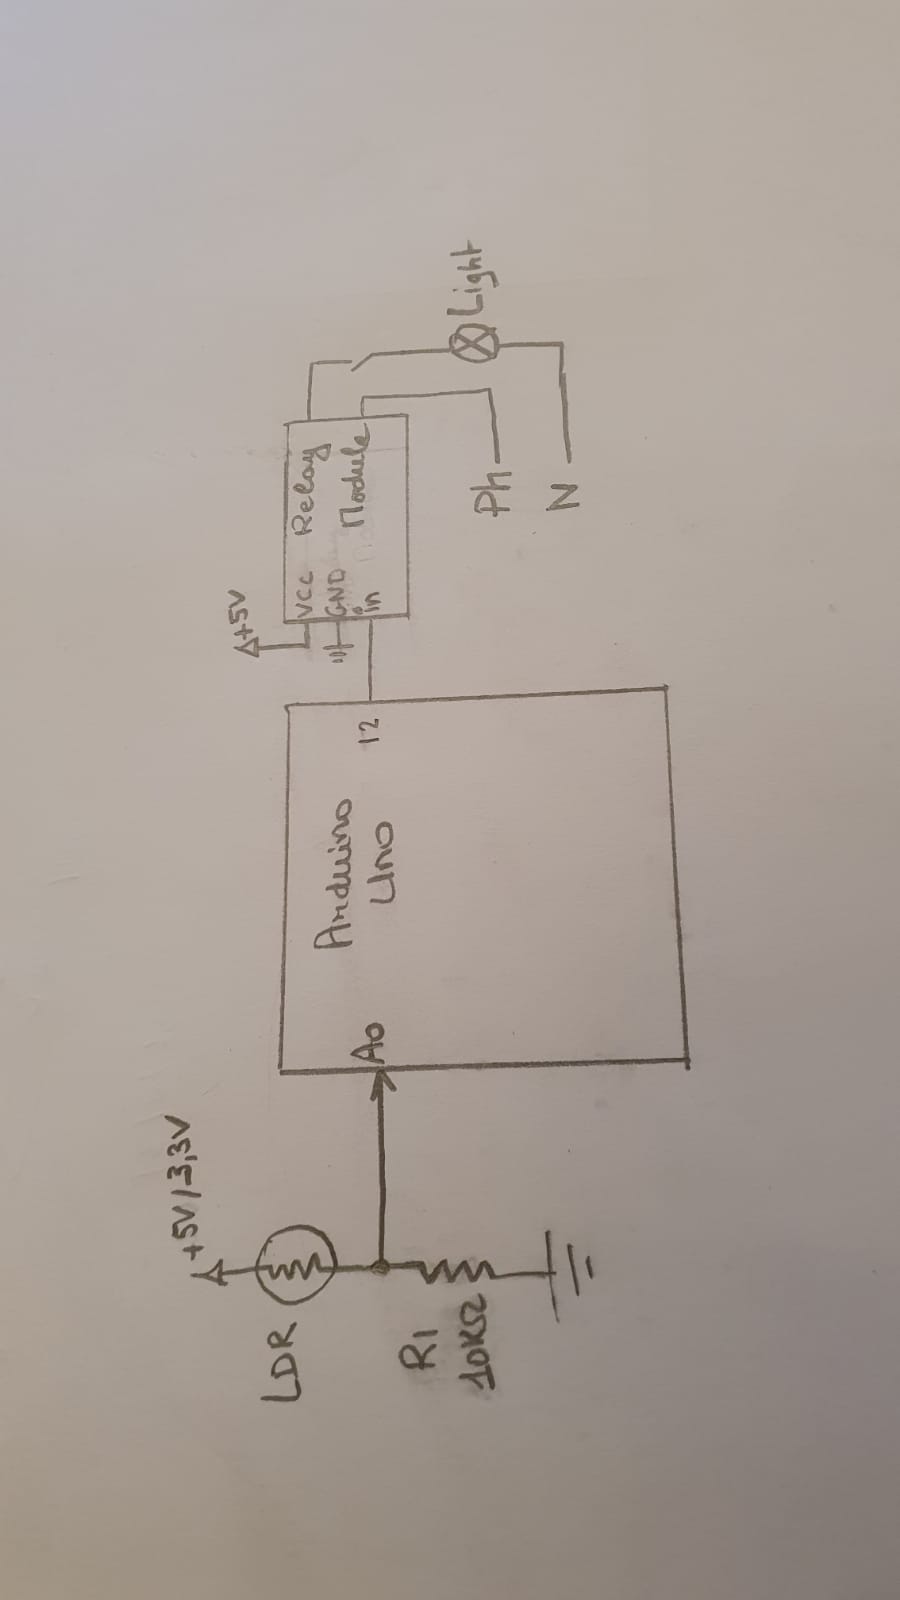 +5V/3,3V
LDR
R1
10KΩ
A0
Arduino
Uno
12
+5V
VCC
GND
in
Relay
Module
Ph
N
Light